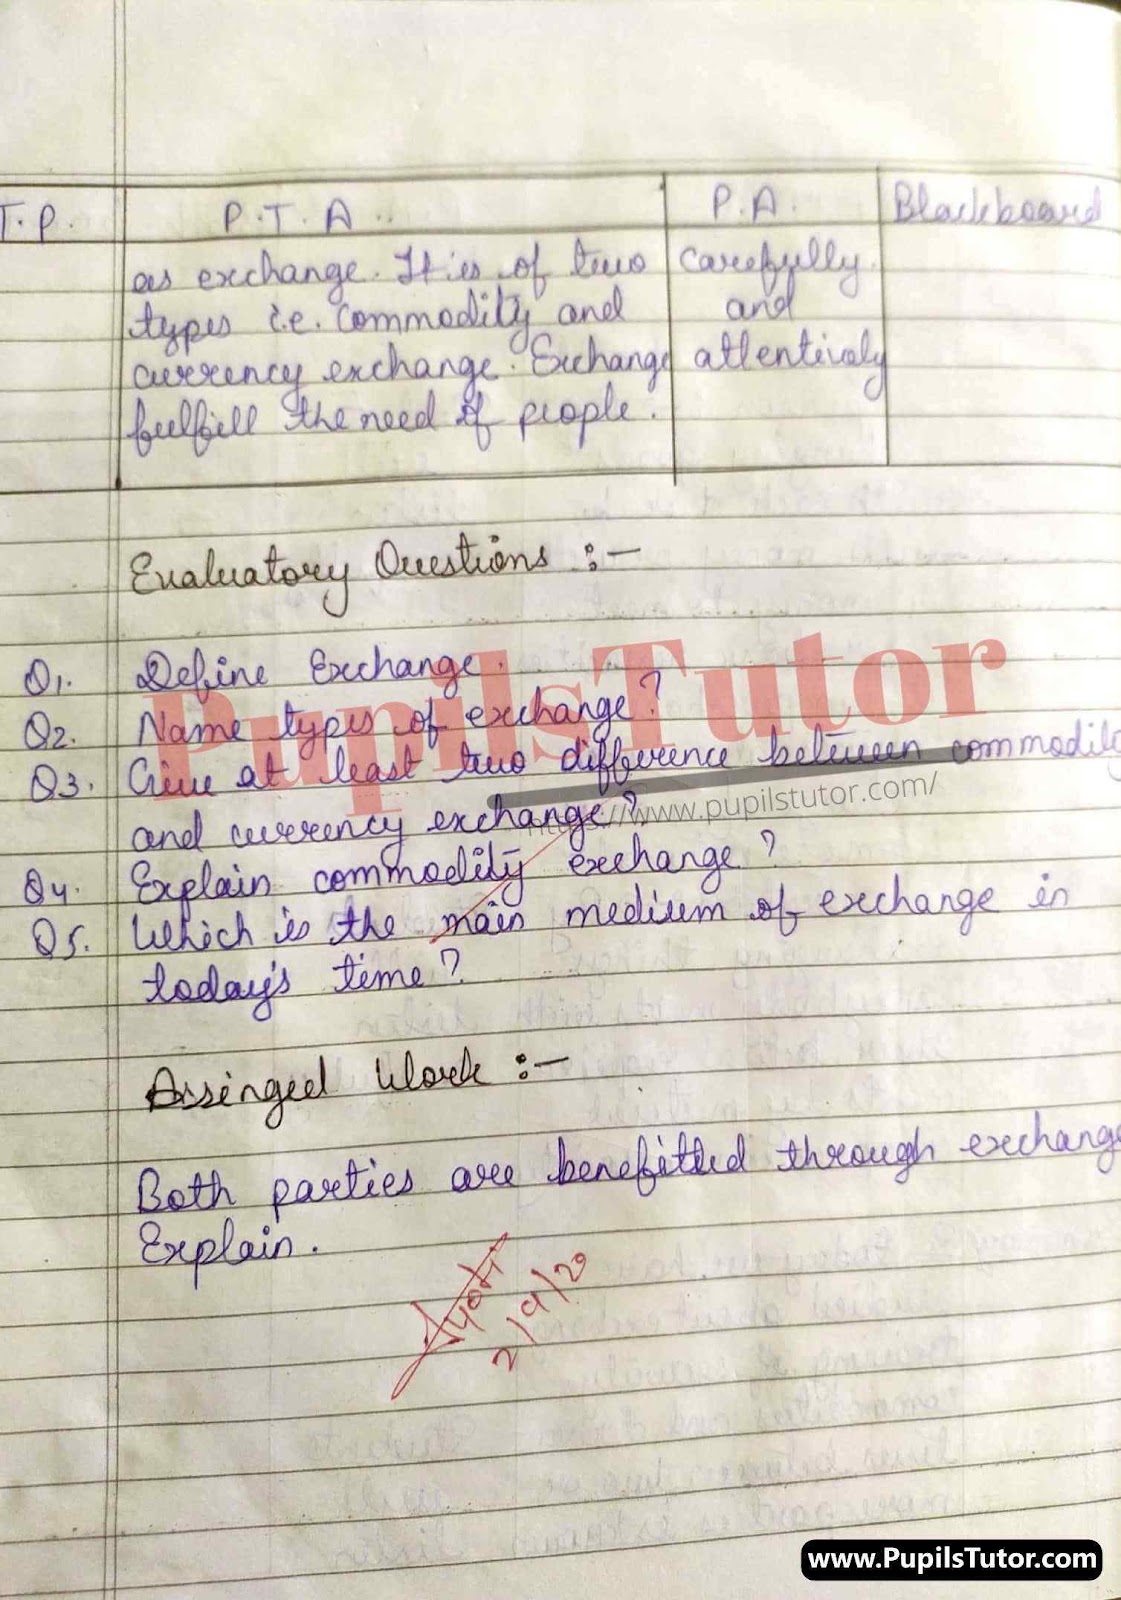 T.P. P.T.A. P.A. Blackboard
as exchange. It is of two carefully
types i.e. commodity and and
currency exchange. Exchange attentivaly
fulfill the need of people.
Evaluatory Questions :-
Q1. Define Exchange.
Q2. Name types of exchange?
Q3. Give at least two difference between commodity
and currency exchange?
Q4. Explain commodity exchange?
Q5. Which is the main medium of exchange in
today's time?
Assinged Work :-
Both parties are benefitted through exchange
Explain.
Jyoti
2/9/20
PupilsTutor
https://www.pupilstutor.com/
www.PupilsTutor.com